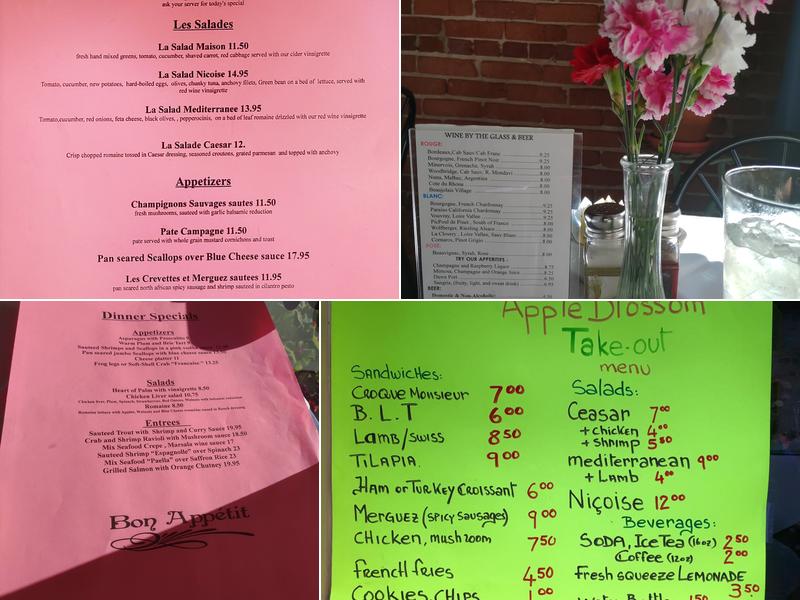 ask your server for today's special
Les Salades
La Salad Maison 11.50
fresh hand mixed greens, tomato, cucumber, shaved carrot, red cabbage served with our cider vinaigrette
La Salad Nicoise 14.95
Tomato, cucumber, new potatoes, hard-boiled eggs, olives, chunky tuna, anchovy filets, Green bean on a bed of lettuce, served with
red wine vinaigrette
La Salad Mediterranee 13.95
Tomato,cucumber, red onions, feta cheese, black olives, , pepperocinis, on a bed of leaf romaine drizzled with our red wine vinaigrette
La Salade Caesar 12.
Crisp chopped romaine tossed in Caesar dressing, seasoned croutons, grated parmesan and topped with anchovy
Appetizers
Champignons Sauvages sautes 11.50
fresh mushrooms, sauteed with garlic balsamic reduction
Pate Campagne 11.50
pate served with whole grain mustard cornichons and toast
Pan seared Scallops over Blue Cheese sauce 17.95
Les Crevettes et Merguez sautees 11.95
pan seared north african spicy sausage and shrimp sauteed in cilantro pesto
WINE BY THE GLASS & BEER
ROUGE:
Bordeaux,Cab Sauv/Cab Franc 9.25
Bourgogne, French Pinot Noir 9.25
Minervois, Grenache, Syrah 8.00
Woodbridge, Cab Sauv. R. Mondavi 8.00
Nuna, Malbec, Argentina 8.00
Cote du Rhone 8.00
Beaujolais Village 8.00
BLANC:
Bourgogne, French Chardonnay 9.25
Paraiso California Chardonnay 9.25
Vouvray, Loire Valley 9.25
PicPoul de Pinet, South of France 8.00
Wolfberger, Riesling Alsace 8.00
La Closery, Loire Valley, Sauv Blanc 8.00
Cornaros, Pinot Grigio 8.00
ROSE:
Beauvignac, Syrah, Rose 8.00
TRY OUR APPERITIFS
Champagne and Raspberry Liquor 8.75
Mimosa, Champagne and Orange Juice 8.25
Dawn Port 6.50
Sangria, (fruity, light, and sweet drink) 6.95
BEER:
Domestic & Non-Alcoholic:
Dinner Specials
Appetizers
Asparagus with Proscuitto
Warm Plum and Brie Tart
Sauteed Shrimps and Scallops in a pink vodka sauce
Pan seared jumbo Scallops with blue cheese sauce
Cheese platter 11
Frog legs or Soft-Shell Crab "Francaise" 13.25
Salads
Heart of Palm with vinaigrette 8.50
Chicken Liver salad 10.75
Romaine 8.50
Entrees
Sauteed Trout with Shrimp and Curry Sauce 19.95
Crab and Shrimp Ravioli with Mushroom sauce 18.50
Mix Seafood Crepe , Marsala wine sauce 17
Sauteed Shrimp "Espagnolle" over Spinach 23
Mix Seafood "Paella" over Saffron Rice 23
Grilled Salmon with Orange Chutney 19.95
Bon Appétit
Apple Blossom
Take-out
menu
Sandwiches:
Croque Monsieur 7.00
B.L.T 6.00
Lamb/swiss 8.50
Tilapia 9.00
Ham or Turkey Croissant 6.00
Merguez (spicy sausages) 9.00
Chicken, mushroom 7.50
french fries 4.50
Cookies, CHIPS 1.00
Salads:
Ceasar 7.00
+ chicken 4.00
+ shrimp 5.50
mediterranean 9.00
+ Lamb 4.00
Niçoise 12.00
Beverages:
SODA, Ice Tea (16oz) 2.50
Coffee (12oz) 2.00
Fresh squeeze LEMONADE
3.50
Water Bottle 1.50